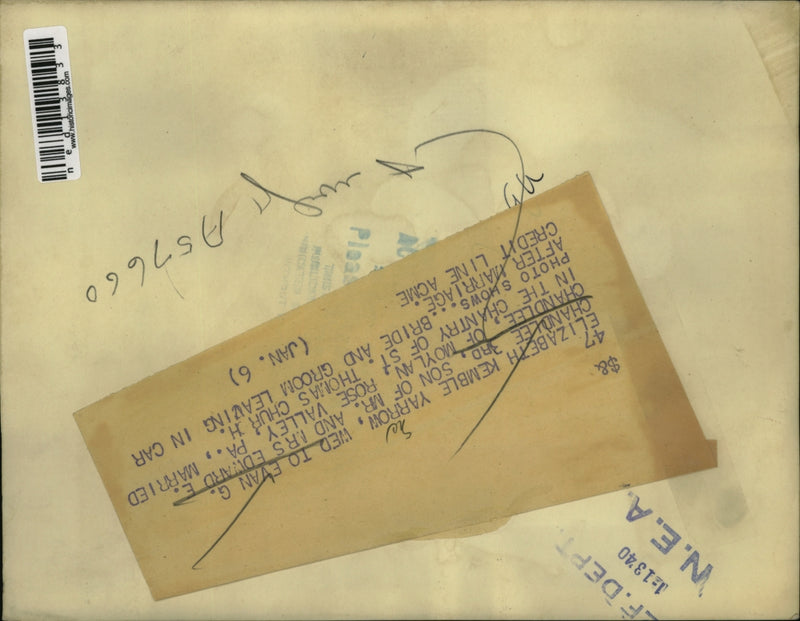 ned13833
www.historicimages.com
A57660
Pleas
$8.
47
ELIZABETH KEMBLE YARROW, WED TO EVAN G.
CHANDLEE 3RD. SON OF MR. AND MRS EDWARD E.
CHANDLEE, OF MOYLAN, ROSE VALLEY, PA., MARRIED
IN THE CHANTRY OF ST. THOMAS CHUR.H.
PHOTO SHOWS.. BRIDE AND GROOM LEAVING IN CAR
AFTER MARRIAGE.
CREDIT LINE ACME (JAN. 6)
EF. DEPT.
1-13'40
N.E.A.